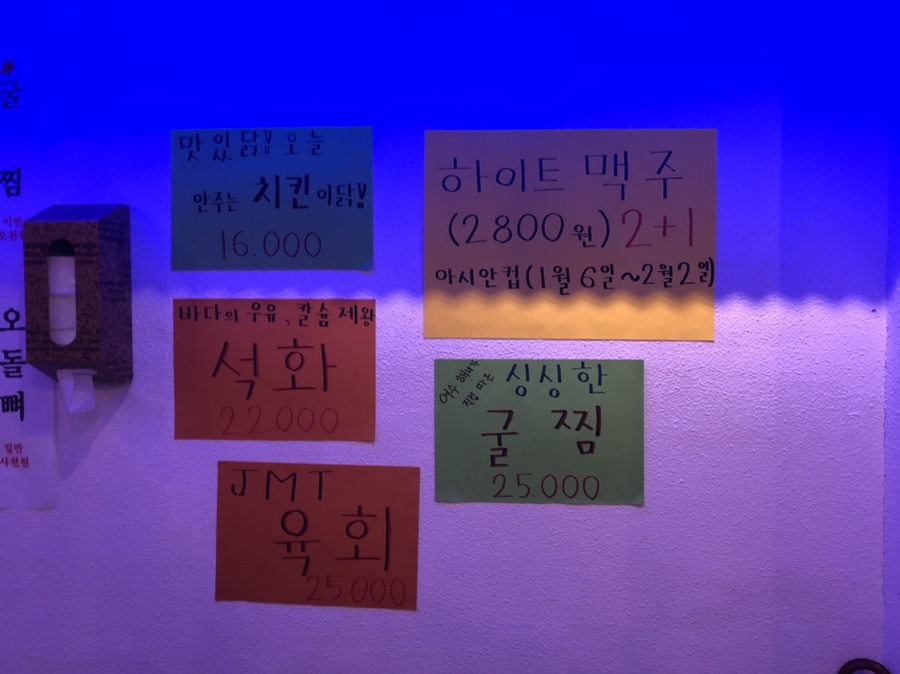 굴
찜
이만
오천원
오
돌
뼈
일만
사천원
맛있닭! 오늘
안주는 치킨이닭!
16.000
하이트 맥주
(2800원) 2+1
아시안컵(1월 6일~2월2일)
바다의 우유, 칼슘제왕
석화
22.000
여수 해녀가
직접 따온
싱싱한
굴찜
25.000
JMT
육회
25000